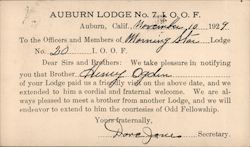 AUBURN LODGE No. 7, I. O. O. F.
Auburn, Calif., November 10 1929
To the Officers and Members of Morning Star Lodge
No. 20 I. O. O. F.
Dear Sirs and Brothers: We take pleasure in notifying
you that Brother Henry Ogden
of your Lodge paid us a friendly visit on the above date, and
we extended to him a cordial and fraternal welcome. We are
always pleased to meet a brother from another Lodge, and we will
endeavor to extend to him the courtesies of Odd Fellowship.
Yours fraternally,
Jones Secretary.